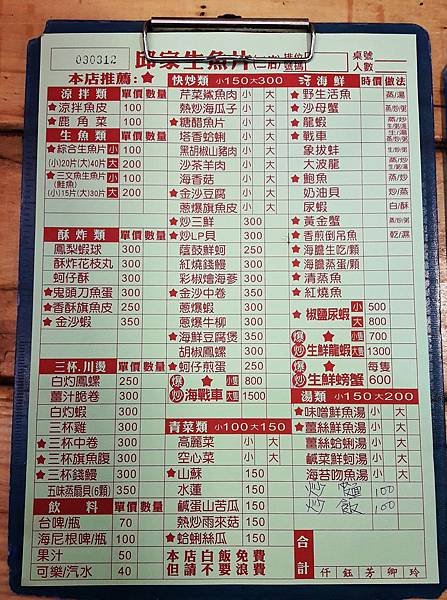 030312 邱家生魚片(二店) 桌號
人數
本店推薦:★ 快炒類 小150大300 海鮮 時價 做法
涼拌類 單價 數量
★涼拌魚皮 100
★鹿角菜 100
生魚類 單價 數量
★綜合生魚片 小 100
(小)20片(大)40片 大 200
★三文魚生魚片 小 100
(鮭魚)
(小)15片(大)30片 大 200
酥炸類 單價 數量
鳳梨蝦球 300
酥炸花枝丸 300
蚵仔酥 300
★鬼頭刀魚蛋 300
★香酥旗魚皮 250
★金沙蝦 350
三杯.川燙 單價 數量
白灼鳳螺 250
薑汁脆卷 300
白灼蝦 300
三杯雞 300
★三杯中卷 300
★三杯旗魚腹 300
★三杯錢鰻 300
五味蒸扇貝(6顆) 350
飲料 單價 數量
台啤/瓶 70
海尼根啤/瓶 100
果汁 50
可樂/汽水 40
芹菜鯊魚肉 小 大
熱炒海瓜子 小 大
★糖醋魚片 小 大
塔香蛤蜊 小 大
黑胡椒山豬肉 小 大
沙茶羊肉 小 大
海香菇 小 大
★金沙豆腐 小 大
蔥爆旗魚皮 小 大
★炒三鮮 300
★炒LP貝 300
蔭豉鮮蚵 250
紅燒錢鰻 300
彩椒燴海參 300
★金沙中卷 350
蔥爆蝦 300
蔥爆牛柳 300
★海鮮豆腐煲 350
胡椒鳳螺 300
★蚵仔煎蛋 250
★爆炒海戰車 小隻 800
大隻 1500
青菜類 小100大150
高麗菜 小 大
空心菜 小 大
★山蘇 150
水蓮 150
鹹蛋山苦瓜 150
熱炒雨來菇 150
★蛤蜊絲瓜 150
本店白飯免費
但請不要浪費
★野生活魚 蒸/湯
★沙母蟹 蒸/炒/粥
★龍蝦
★戰車
★象拔蚌 生/炒/粥
★大波龍
★鮑魚 蒸/炒
奶油貝 炒/蒸
尿蝦 白/酥
★黃金蟹 蒸/炒/粥
★香煎倒吊魚 乾/濕
★海膽生吃/顆
★海膽蒸蛋/顆
★清蒸魚
★紅燒魚
★椒鹽尿蝦 小 500
大 800
★爆炒生鮮龍蝦 小隻 700
大隻 1300
★爆炒生鮮螃蟹 每隻 600
湯類 小150大200
★味噌鮮魚湯 小 大
★薑絲鮮魚湯 小 大
★薑絲蛤蜊湯 小 大
鹹菜鮮蚵湯 小 大
海苔吻魚湯 小 大
炒麵 100
炒飯 100
合計
仟 鈺 芳 卿 玲